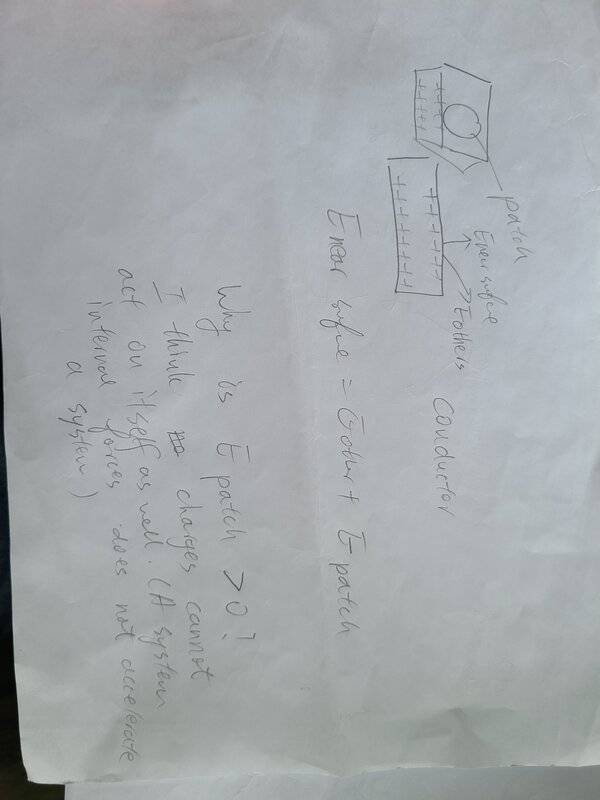 patch
+++
+++++
E near surface
++++++
+++++++
E others
conductor
E near surface = E other + E patch
Why is E patch > 0?
I think charges cannot
act on itself as well. (A system
internal forces does not accelerate
a system)